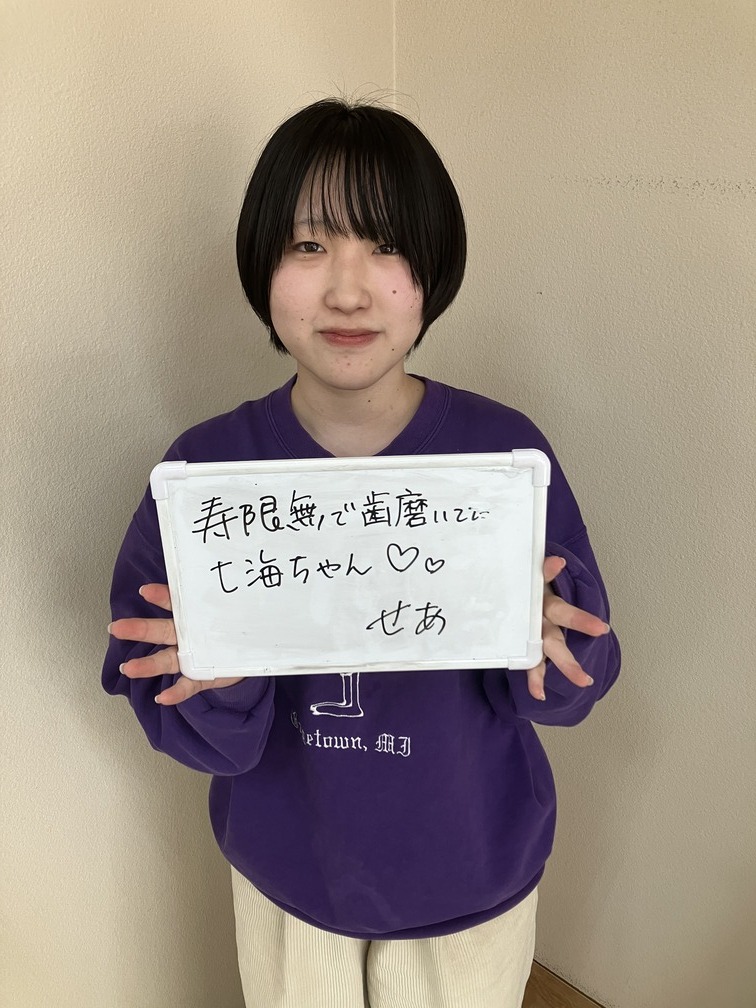 寿限無で歯磨いてに
七海ちゃん♡♡
せあ
etown, MI